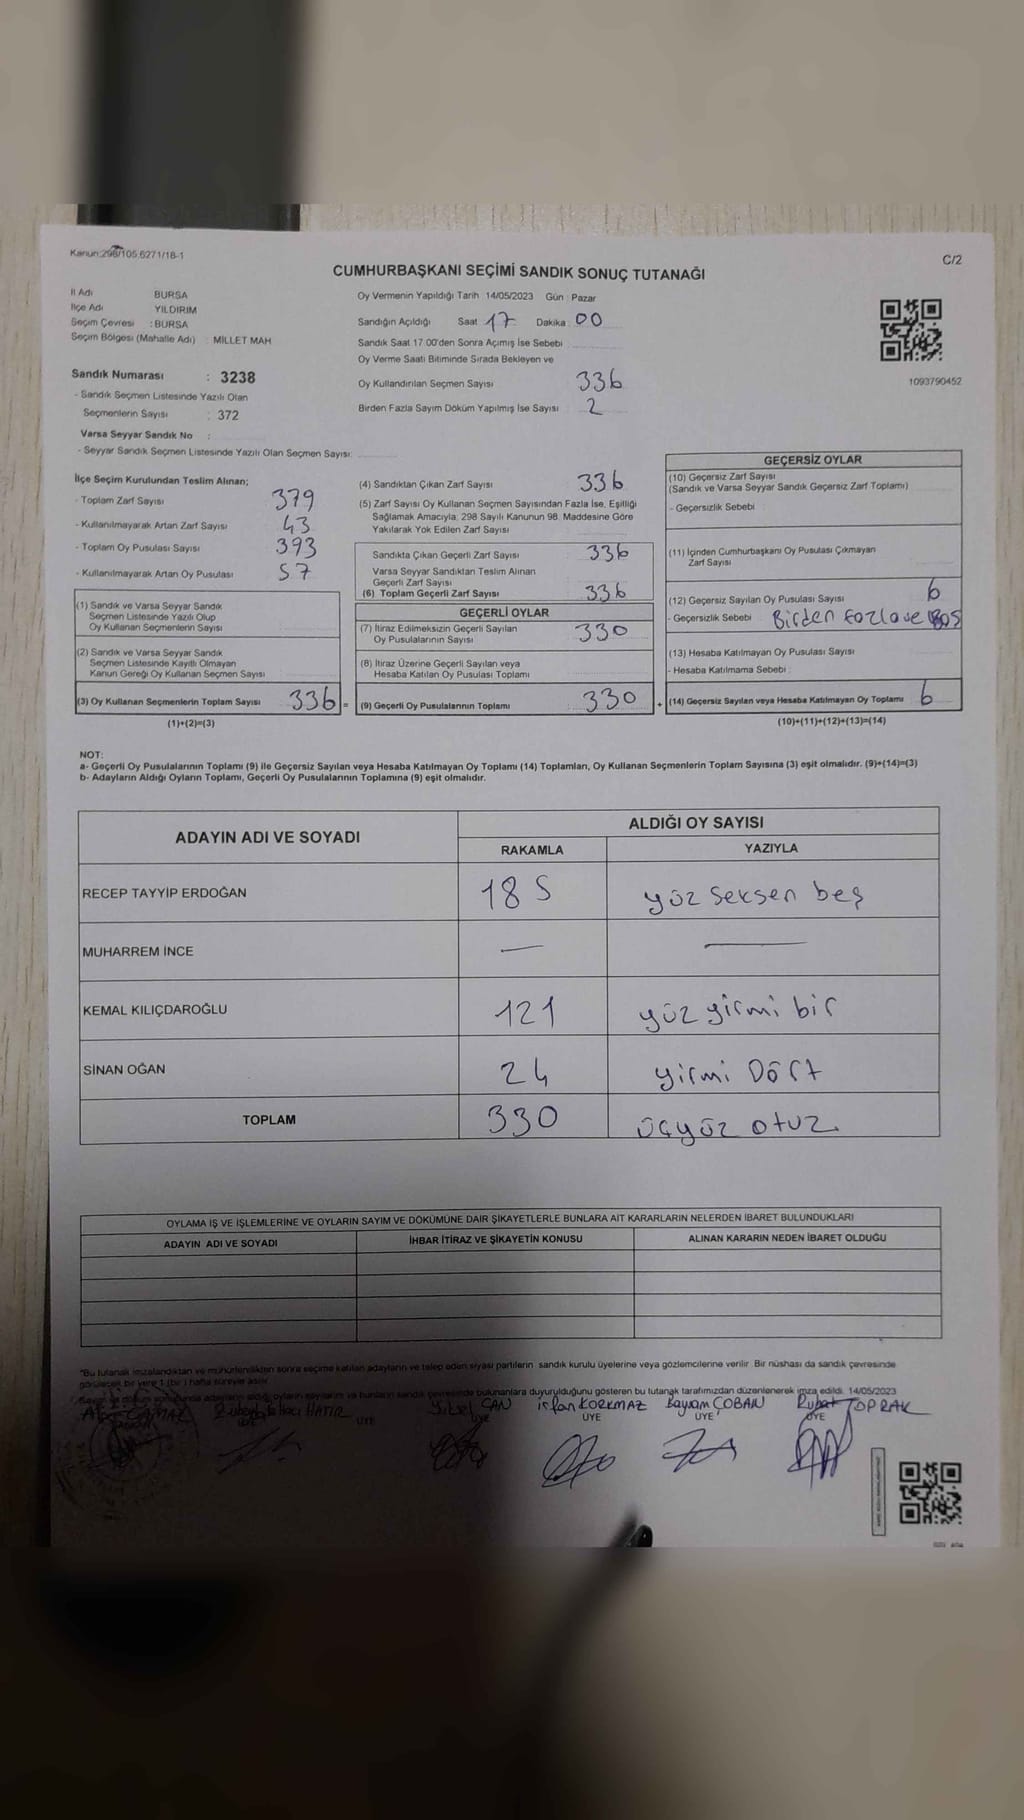 Kanun:298/105.6271/18-1
C/2
CUMHURBAŞKANI SEÇİMİ SANDIK SONUÇ TUTANAĞI
İl Adı BURSA
İlçe Adı YILDIRIM
Seçim Çevresi : BURSA
Seçim Bölgesi (Mahalle Adı) : MİLLET MAH
Sandık Numarası : 3238
- Sandık Seçmen Listesinde Yazılı Olan
Seçmenlerin Sayısı : 372
Varsa Seyyar Sandık No :
- Seyyar Sandık Seçmen Listesinde Yazılı Olan Seçmen Sayısı:
Oy Vermenin Yapıldığı Tarih 14/05/2023 Gün : Pazar
Sandığın Açıldığı Saat 17 Dakika : 00
Sandık Saat 17.00'den Sonra Açımış İse Sebebi
Oy Verme Saati Bitiminde Sırada Bekleyen ve
Oy Kullandırılan Seçmen Sayısı 336
Birden Fazla Sayım Döküm Yapılmış İse Sayısı 2
1093790452
İlçe Seçim Kurulundan Teslim Alınan;
- Toplam Zarf Sayısı 379
- Kullanılmayarak Artan Zarf Sayısı 43
- Toplam Oy Pusulası Sayısı 393
- Kullanılmayarak Artan Oy Pusulası 57
(1) Sandık ve Varsa Seyyar Sandık
Seçmen Listesinde Yazılı Olup
Oy Kullanan Seçmenlerin Sayısı
(2) Sandık ve Varsa Seyyar Sandık
Seçmen Listesinde Kayıtlı Olmayan
Kanun Gereği Oy Kullanan Seçmen Sayısı
(3) Oy Kullanan Seçmenlerin Toplam Sayısı 336 =
(1)+(2)=(3)
(4) Sandıktan Çıkan Zarf Sayısı 336
(5) Zarf Sayısı Oy Kullanan Seçmen Sayısından Fazla İse, Eşitliği
Sağlamak Amacıyla; 298 Sayılı Kanunun 98. Maddesine Göre
Yakılarak Yok Edilen Zarf Sayısı
Sandıkta Çıkan Geçerli Zarf Sayısı 336
Varsa Seyyar Sandıktan Teslim Alınan
Geçerli Zarf Sayısı
(6) Toplam Geçerli Zarf Sayısı 336
GEÇERLİ OYLAR
(7) İtiraz Edilmeksizin Geçerli Sayılan
Oy Pusulalarının Sayısı 330
(8) İtiraz Üzerine Geçerli Sayılan veya
Hesaba Katılan Oy Pusulası Toplamı
(9) Geçerli Oy Pusulalarının Toplamı 330 +
GEÇERSİZ OYLAR
(10) Geçersiz Zarf Sayısı
(Sandık ve Varsa Seyyar Sandık Geçersiz Zarf Toplamı)
- Geçersizlik Sebebi :
(11) İçinden Cumhurbaşkanı Oy Pusulası Çıkmayan
Zarf Sayısı
(12) Geçersiz Sayılan Oy Pusulası Sayısı 6
- Geçersizlik Sebebi Birden fazla ve Boş
(13) Hesaba Katılmayan Oy Pusulası Sayısı
- Hesaba Katılmama Sebebi :
(14) Geçersiz Sayılan veya Hesaba Katılmayan Oy Toplamı 6
(10)+(11)+(12)+(13)=(14)
NOT:
a- Geçerli Oy Pusulalarının Toplamı (9) ile Geçersiz Sayılan veya Hesaba Katılmayan Oy Toplamı (14) Toplamları, Oy Kullanan Seçmenlerin Toplam Sayısına (3) eşit olmalıdır. (9)+(14)=(3)
b- Adayların Aldığı Oyların Toplamı, Geçerli Oy Pusulalarının Toplamına (9) eşit olmalıdır.
ADAYIN ADI VE SOYADI ALDIĞI OY SAYISI
RAKAMLA YAZIYLA
RECEP TAYYİP ERDOĞAN 185 yüz seksen beş
MUHARREM İNCE — —
KEMAL KILIÇDAROĞLU 121 yüz yirmi bir
SİNAN OĞAN 24 yirmi Dört
TOPLAM 330 üçyüz otuz
OYLAMA İŞ VE İŞLEMLERİNE VE OYLARIN SAYIM VE DÖKÜMÜNE DAİR ŞİKAYETLERLE BUNLARA AİT KARARLARIN NELERDEN İBARET BULUNDUKLARI
ADAYIN ADI VE SOYADI İHBAR İTİRAZ VE ŞİKAYETİN KONUSU ALINAN KARARIN NEDEN İBARET OLDUĞU
"Bu tutanak imzalandıktan ve mühürlendikten sonra seçime katılan adayların ve talep eden siyasi partilerin sandık kurulu üyelerine veya gözlemcilerine verilir. Bir nüshası da sandık çevresinde
görülecek bir yere 1 (bir) hafta süreyle asılır.
adayların aldığı oyların sayılarını ve bunların sandık çevresinde bulunanlara duyurulduğunu gösteren bu tutanak tarafımızdan düzenlenerek imza edildi. 14/05/2023
Hatır CAN irfan KORKMAZ Bayram ÇOBAN TOPRAK
ÜYE ÜYE ÜYE ÜYE ÜYE